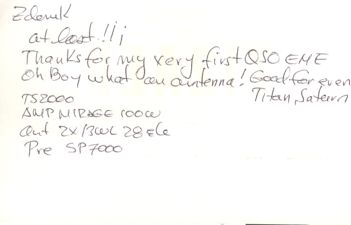 Zdenek
at last!!¡
Thanks for my very first QSO EME
Oh Boy what an antenna! Good for even
Titan, Saturn
TS2000
AMP MIRAGE 100W
Ant 2x13WL 28 Ele
Pre SP7000